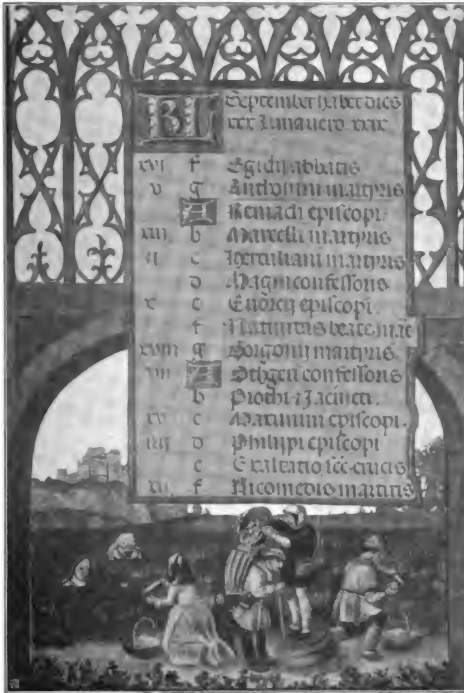 KL September habet dies
xxx Luna vero xxix
xvi f Egidii abbatis
v g Anthonini martyris
A Remacli episcopi.
xiii b Marcelli martyris
ii c Herculiani martyris
d Magni confessoris
x e Evorcii episcopi.
f Nativitas beate marie
xviii g Gorgonii martyris
vii A confessoris
b Prothi z Jacincti.
xv c Maximini episcopi.
iiii d Philippi episcopi
e Exaltatio sce crucis
xii f Nicomedis martiris